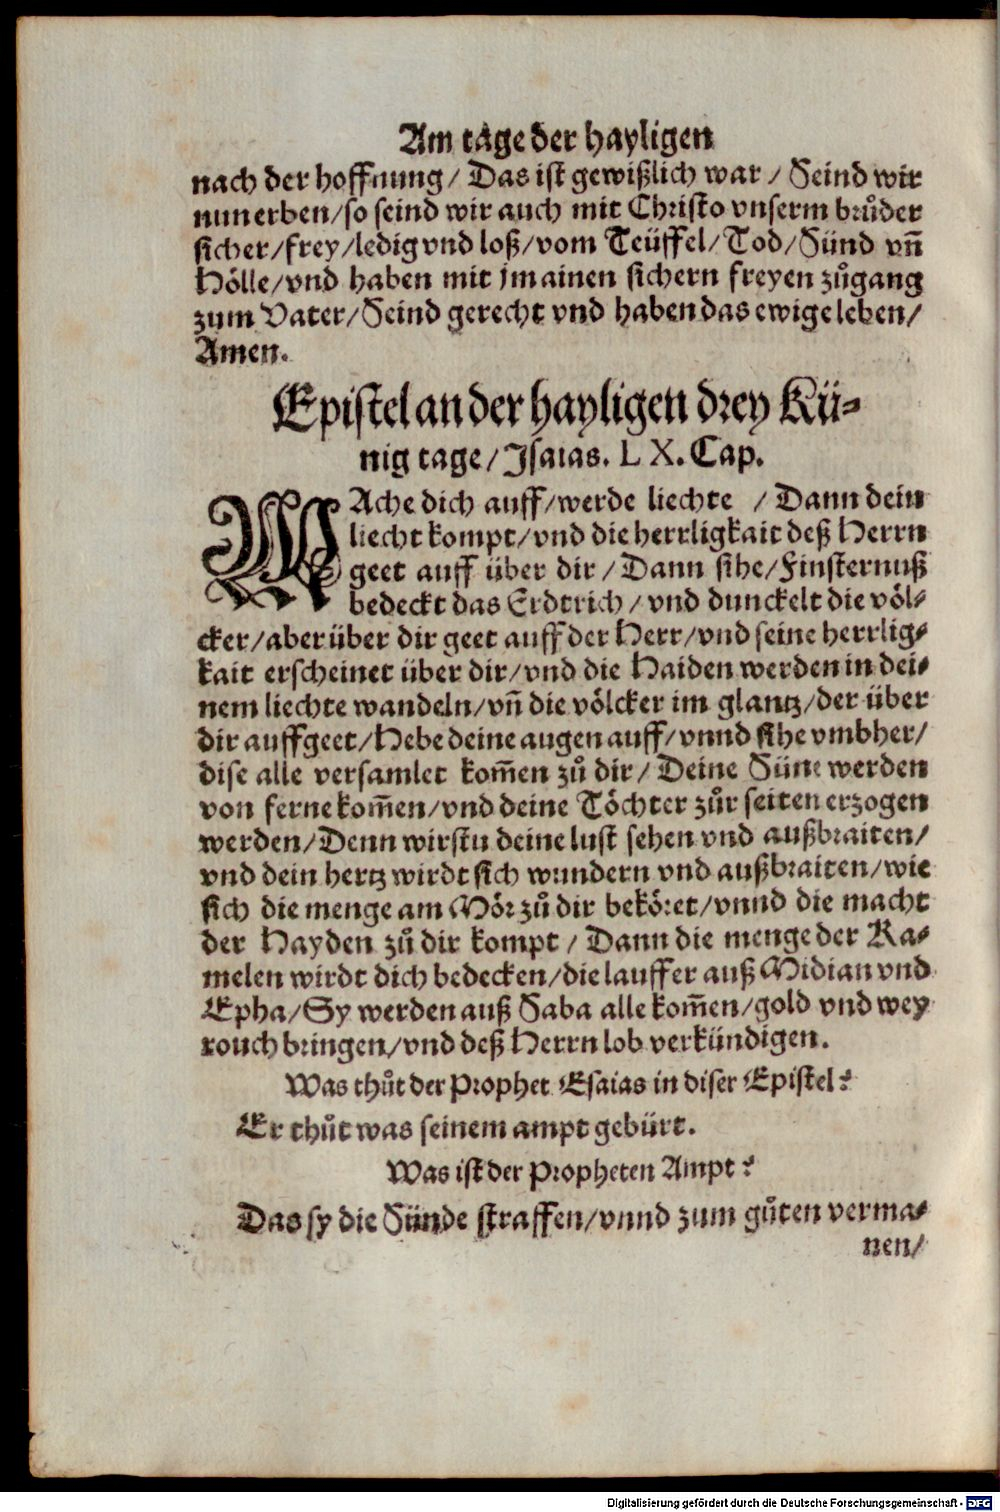 Am tage der hayligen
nach der hoffnung / Das ist gewißlich war / Seind wir
nun erben / so seind wir auch mit Christo vnserm bruͦder
sicher / frey / ledig vnd loß / vom Teüffel / Tod / Sünd vñ
Hölle / vnd haben mit jm ainen sichern freyen zuͦgang
zum Vater / Seind gerecht vnd haben das ewige leben /
Amen.
Epistel an der hayligen drey Kü⸗
nig tage / Jsaias. L X. Cap.
WAche dich auff / werde liechte / Dann dein
liecht kompt / vnd die herrligkait deß Herrn
geet auff über dir / Dann sihe / Finsternuß
bedeckt das Erdtrich / vnd dunckelt die völ⸗
cker / aber über dir geet auff der Herr / vnd seine herrlig⸗
kait erscheinet über dir / vnd die Haiden werden in dei⸗
nem liechte wandeln / vñ die völcker im glantz / der über
dir auffgeet / Hebe deine augen auff / vnnd sihe vmbher /
dise alle versamlet kom̃en zuͦ dir / Deine Süne werden
von ferne kom̃en / vnd deine Töchter zuͦr seiten erzogen
werden / Denn wirstu deine lust sehen vnd außbraiten /
vnd dein hertz wirdt sich wundern vnd außbraiten / wie
sich die menge am Mör zuͦ dir beköret / vnnd die macht
der Hayden zuͦ dir kompt / Dann die menge der Ka⸗
melen wirdt dich bedecken / die lauffer auß Midian vnd
Epha / Sy werden auß Saba alle kom̃en / gold vnd wey
rouch bringen / vnd deß Herrn lob verkündigen.
Was thuͦt der Prophet Esaias in diser Epistel?
Er thuͦt was seinem ampt gebürt.
Was ist der Propheten Ampt?
Das sy die Sünde straffen / vnnd zum guͦten verma⸗
nen /
Digitalisierung gefördert durch die Deutsche Forschungsgemeinschaft - DFG